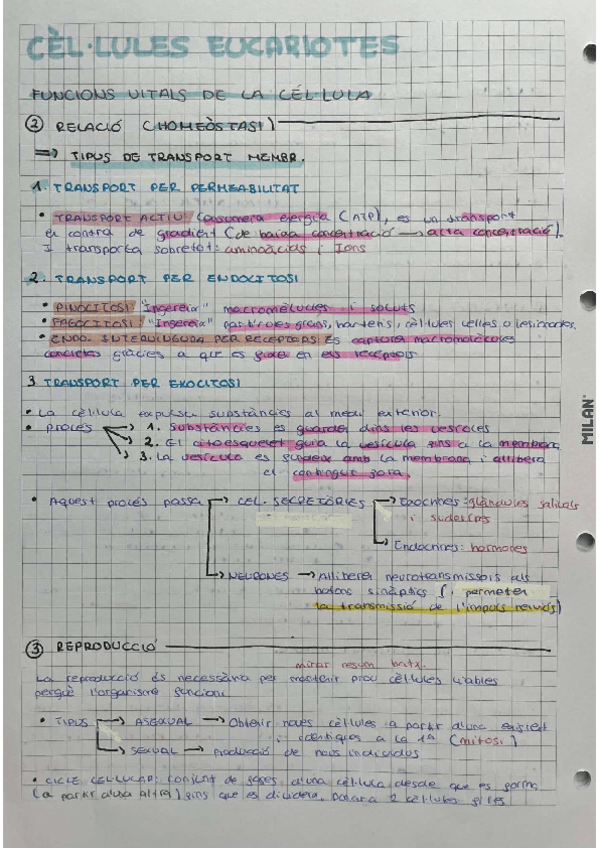 CÈL·LULES EUCARIOTES
FUNCIONS VITALS DE LA CÈL·LULA
② RELACIÓ (HOMEÒSTASI)
=> TIPUS DE TRANSPORT MEMBR.
1. TRANSPORT PER PERMEABILITAT
• TRANSPORT ACTIU (consumeix energia (ATP), es un transport
en contra de gradient (de baixa concentració → alta concentració).
I transporta sobretot: aminoàcids i Ions
2. TRANSPORT PER ENDOCITOSI
• PINOCITOSI "Ingereix" macromolècules i soluts
• FAGOCITOSI: "Ingereix" partícules grans, bacteris, cèl·lules velles o lesionades.
• ENDO. INTERVINGUDA PER RECEPTORS Es captura macromolècules
concretes gràcies a que es fixen en els receptors
3 TRANSPORT PER EXOCITOSI
• La cèl·lula expulsa substàncies al medi exterior.
• Procés → 1. Substàncies es guarden dins les vesícules
→ 2. El citoesquelet guia la vesícula fins a la membrana
→ 3. La vesícula es fusiona amb la membrana i allibera
el contingut fora.
• Aquest procés passa → CÈL. SECRETÒRIES → Exocrines: glàndules salivals
i sudoríps
→ Endocrines: hormones
→ NEURONES → Alliberen neurotransmissors als
botons sinàptics (i permeten
la transmissió de l'impuls nerviós)
③ REPRODUCCIÓ
mirar resum
La reproducció és necessària per mantenir prou cèl·lules viables
perquè l'organisme funcioni.
• TIPUS → ASEXUAL → Obtenir noves cèl·lules a partir d'una existent
i idèntiques a la 1ª (mitosi)
→ SEXUAL → producció de nous individus
• CICLE CEL·LULAR: conjunt de fases d'una cèl·lula desde que es forma
(a partir d'una altra) fins que es divideix, donara 2 cèl·lules filles
MILAN